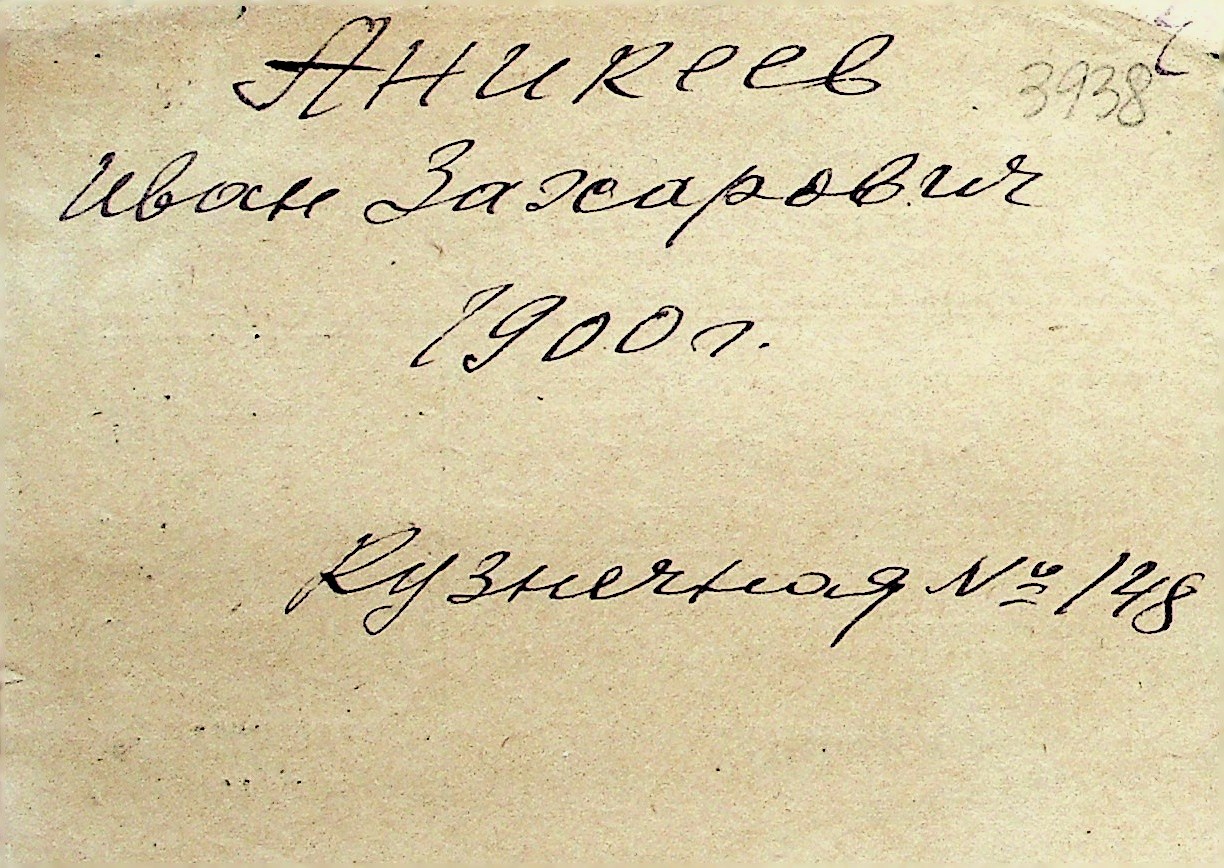 Аникеев 3938
Иван Захарович
1900 г.
Кузнечная № 148